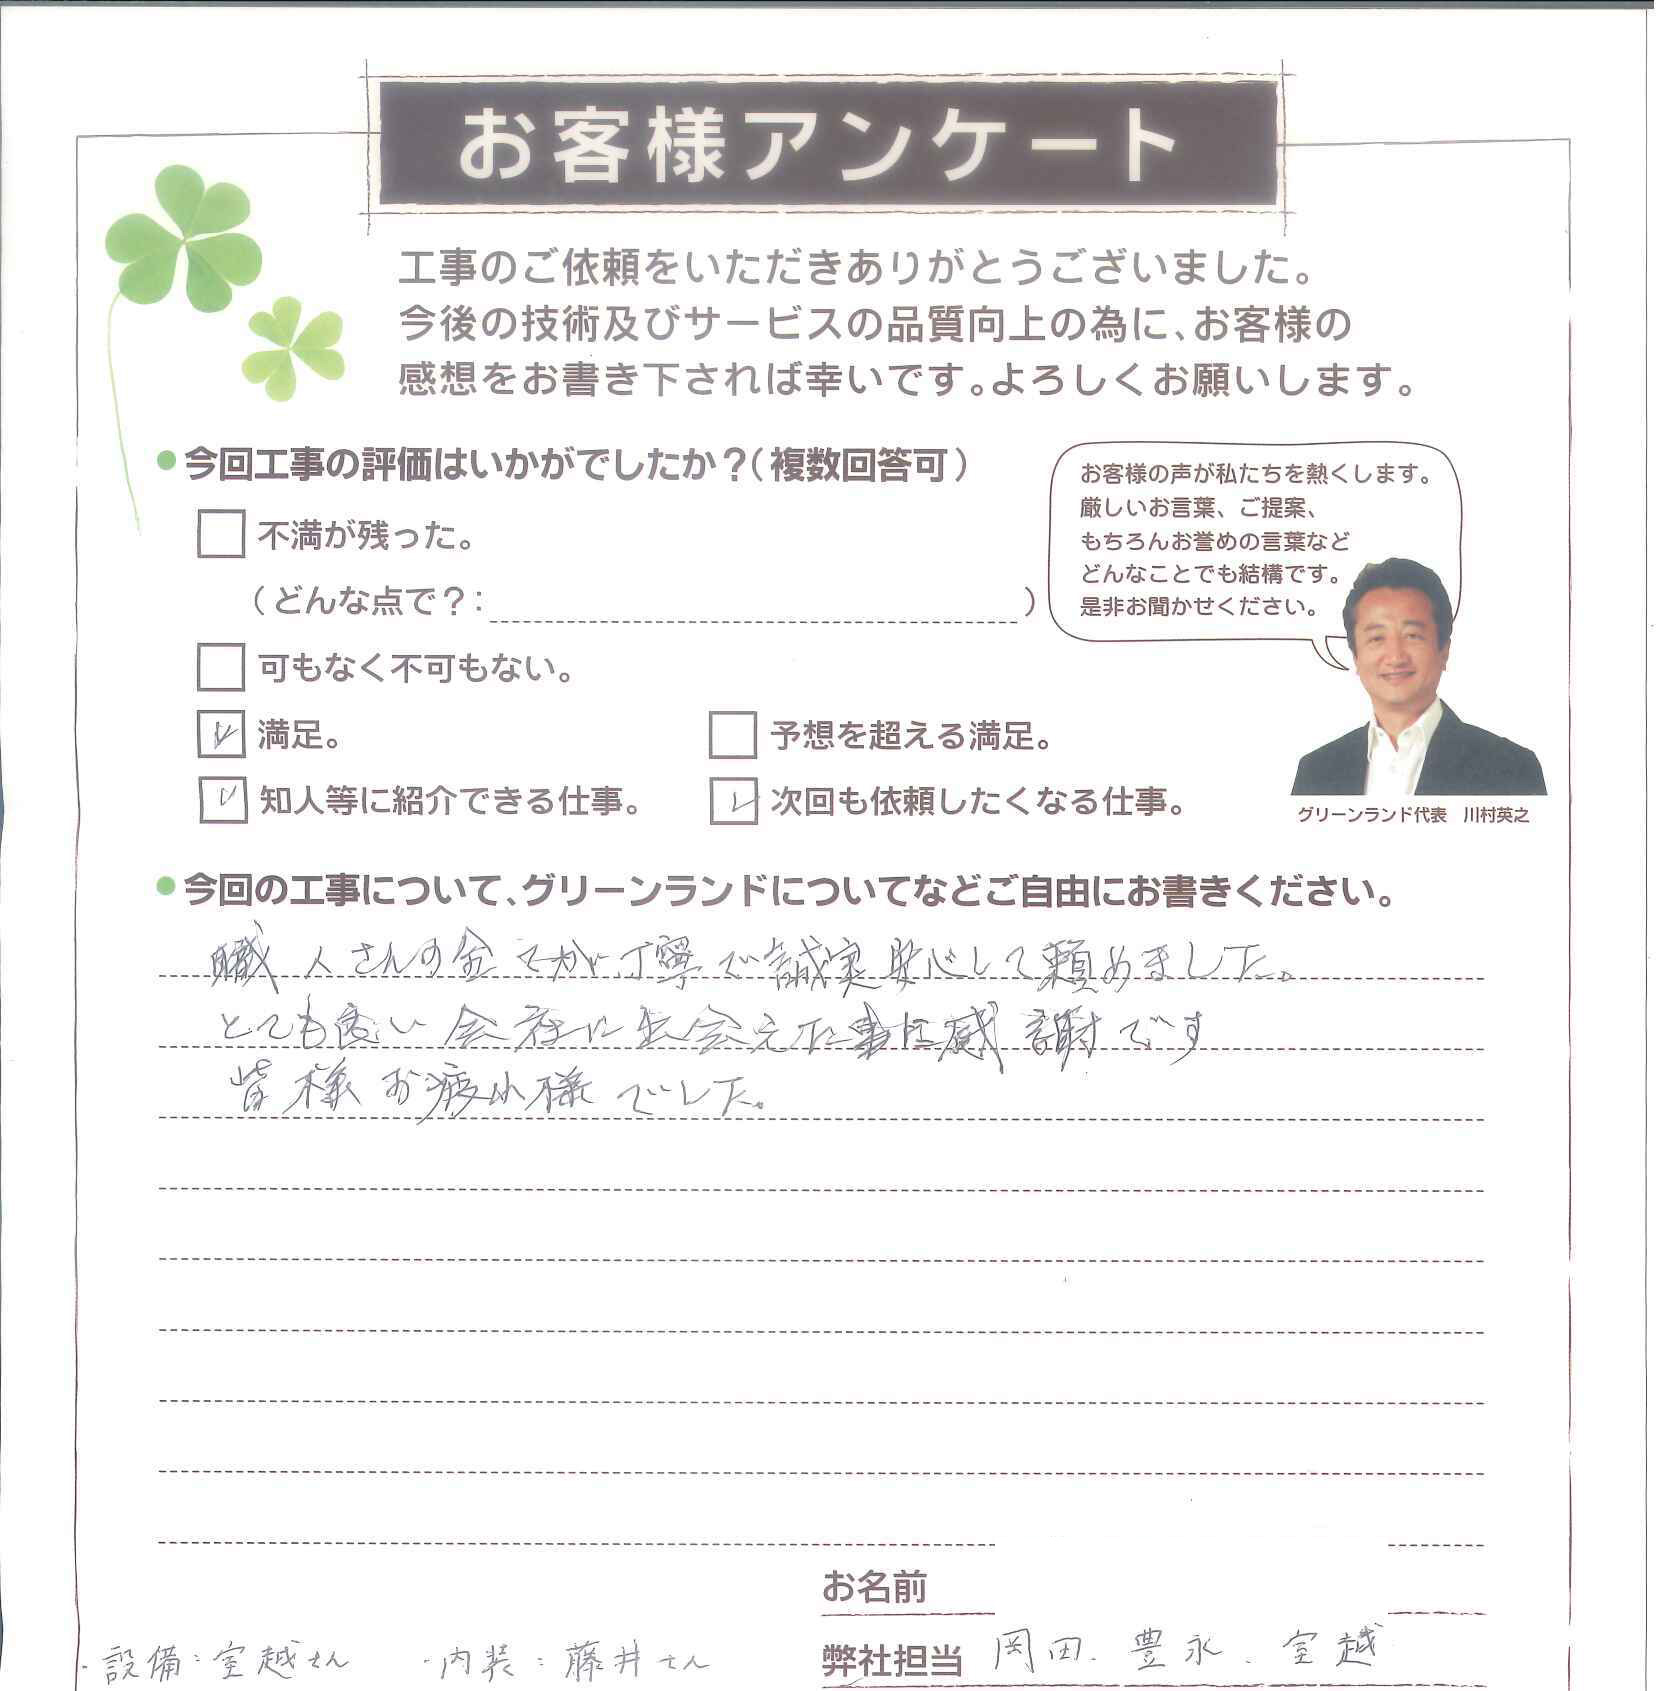 お客様アンケート
工事のご依頼をいただきありがとうございました。
今後の技術及びサービスの品質向上の為に、お客様の
感想をお書き下されば幸いです。よろしくお願いします。
今回工事の評価はいかがでしたか？（複数回答可）
不満が残った。
（どんな点で？：　）
可もなく不可もない。
満足。
予想を超える満足。
知人等に紹介できる仕事。
次回も依頼したくなる仕事。
お客様の声が私たちを熱くします。
厳しいお言葉、ご提案、
もちろんお誉めの言葉など
どんなことでも結構です。
是非お聞かせください。
グリーンランド代表　川村英之
今回の工事について、グリーンランドについてなどご自由にお書きください。
職人さんの全てが丁寧で誠実安心して頼めました。
とても良い会社に出会えた事に感謝です
皆様お疲れ様でした。
お名前
弊社担当 岡田、豊永、室越
・設備：室越さん ・内装：藤井さん